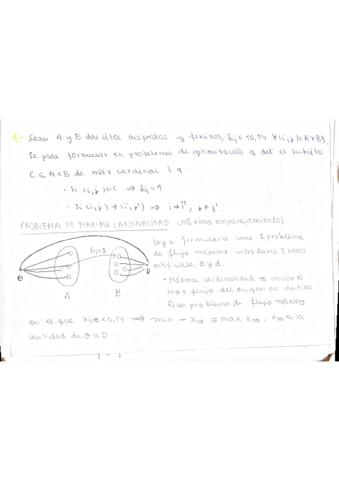 1- Sean A y B dos cjtos disjuntos y finitos, δij ∈ {0,1} ∀(i,j) ∈ A×B.
Se pide formular el problema de optimización q det el subcjto
C ⊆ A×B de máx cardinal | q
· Si (i,j) ∈ C ⇒ δij = 1
· Si (i,j) ≠ (i',j') ⇒ i ≠ i', j ≠ j'
PROBLEMA DE MÁXIMA CARDINALIDAD (máximo emparejamiento)
δij=1
Voy a formularlo como 1 problema
de flujo máximo: introduzco 2 nodos
artificiales O y D.
O
D
A
B
· Máxima cardinalidad ≡ enviar el
max flujo del origen al destino.
Es un problema de flujo máximo
en el que xij ∈ {0,1} ⇒ min - x00 ≡ max x00, x00 es la
cantidad de O a D.